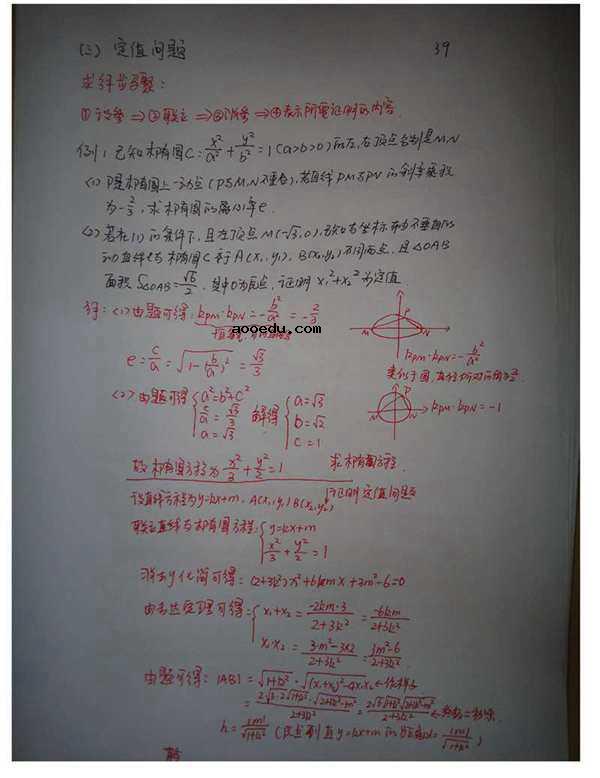 (三) 定值问题
39
求解步骤:
①设参 ⇒ ②联立 ⇒ ③消参 ⇒ ④表示所需证明的内容.
例1, 已知椭圆C: x²/a² + y²/b² = 1 (a>b>0) 的左, 右顶点分别是M,N
(1) P是椭圆上一动点 (P与M,N不重合), 若直线PM与PN的斜率乘积
为 -2/3, 求椭圆的离心率e.
(2) 若在(1)的条件下, 且左顶点M(-√3,0), 与坐标轴不垂直的
直线l与椭圆C交于A(x₁,y₁), B(x₂,y₂)不同两点, 且△OAB
面积 S△OAB = √6/2, 其中O为原点, 证明 x₁²+x₂² 为定值.
解: (1) 由题可得: kPM·kPN = -b²/a² = -2/3
aooedu.com
P
M
N
kPM·kPN = -b²/a²
e = c/a = √(1-(b/a)²) = √3/3
类似于圆, 直径所对的角
P
kPM·kPN = -1
(2) 由题可得 { a²=b²+c²
c/a = √3/3
a=√3
解得 { a=√3
b=√2
c=1
故椭圆方程为 x²/3 + y²/2 = 1
求椭圆方程.
设直线方程为y=kx+m, A(x₁,y₁) B(x₂,y₂)
证明定值问题
联立直线与椭圆方程: { y=kx+m
x²/3 + y²/2 = 1
消去y化简可得: (2+3k²)x²+6kmx+3m²-6=0
由韦达定理可得: { x₁+x₂ = -2km·3/(2+3k²) = -6km/(2+3k²)
x₁·x₂ = (3·m²-3×2)/(2+3k²) = (3m²-6)/(2+3k²)
由题可得: |AB| = √(1+k²)·√((x₁+x₂)²-4x₁x₂)
= 2√3·√2·√(1+k²)·√(2+3k²-m²)/(2+3k²) = 2√6√(1+k²)√(2+3k²-m²)/(2+3k²)
h = |m|/√(1+k²) (原点到直y=kx+m的距离d = |m|/√(1+k²))